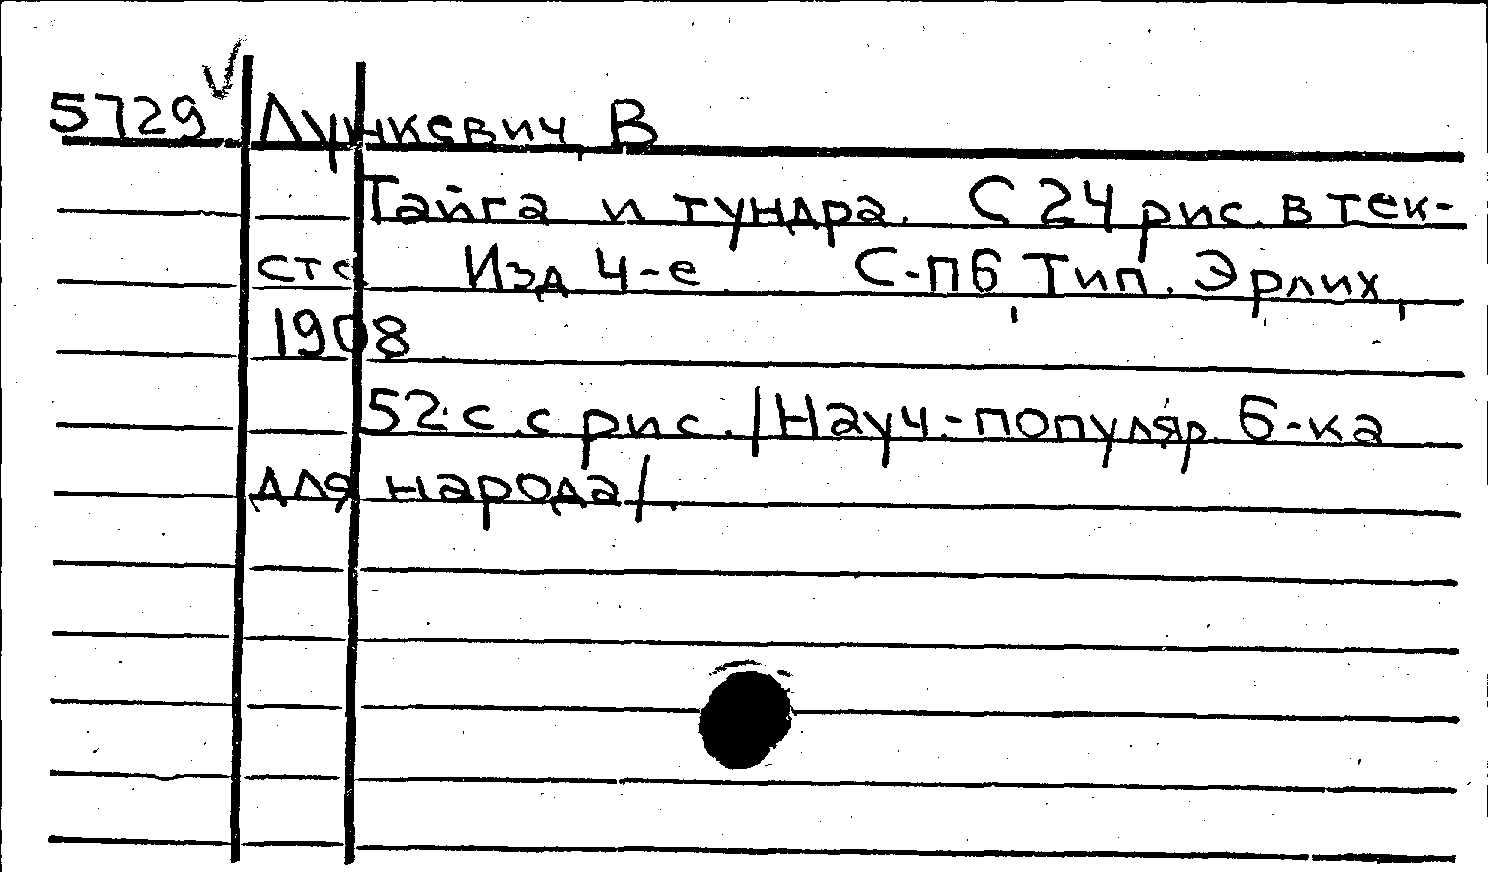 5729 Лункевич, В
Тайга и тундра. С 24 рис. в тек-
сте. Изд 4-е. С-пб, Тип. Эрлих,
1908
52 с. с рис. /Науч.-популяр. б-ка
для народа/.